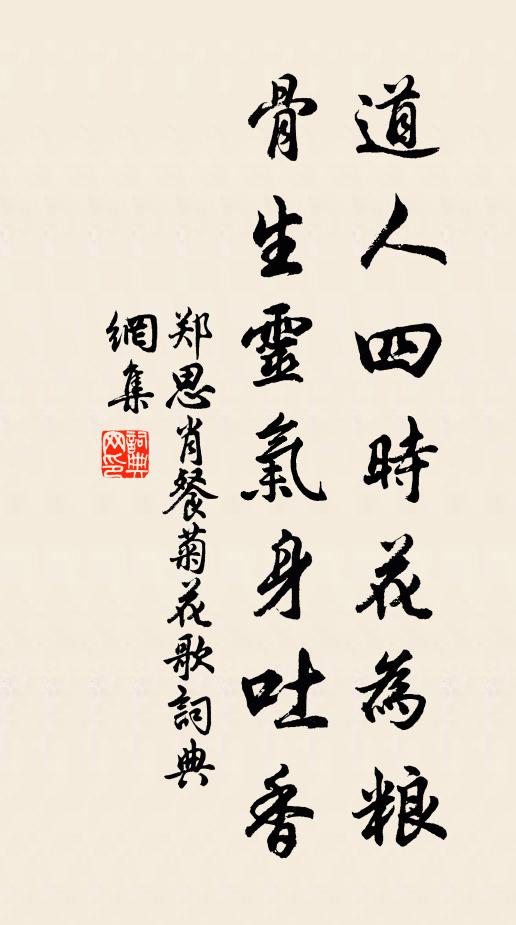 道人四時花為粮
骨生靈氣身吐香
郑思肖餐菊花歌詞典
網集
詞典網印